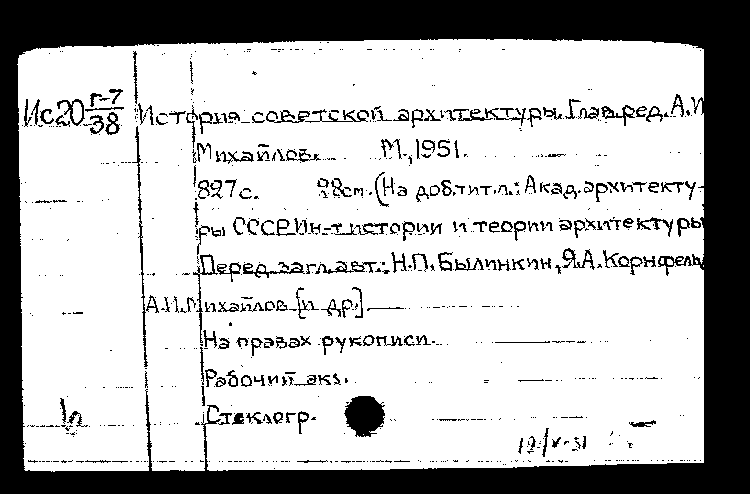 Ис20 г-7/38 История советской архитектуры. Глав.ред. А.И
Михайлов. М.,1951.
827с. 28см.(На доб.тит.л.: Акад.архитекту-
ры СССР.Ин-т истории и теории архитектуры
Перед загл.авт.: Н.П.Былинкин, Я.А.Корнфельд
А.И.Михайлов [и др].
На правах рукописи.
Рабочий экз.
Стеклогр.